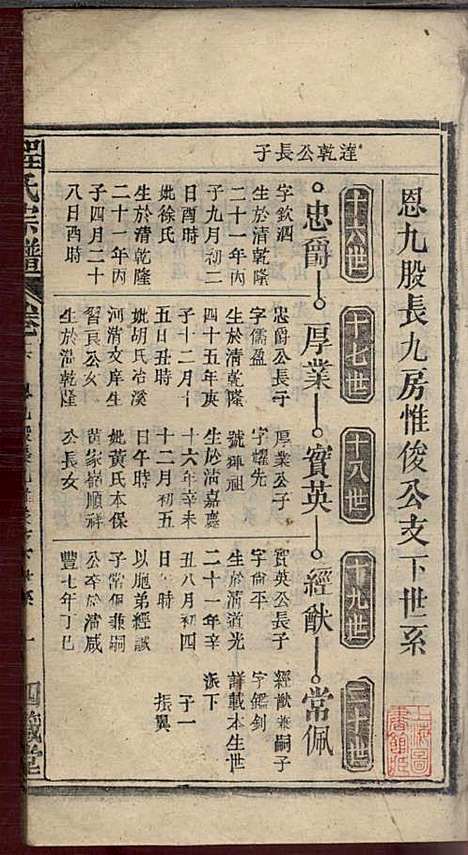 恩九股長九房惟俊公支下世系
十六世
十七世
十八世
十九世
二十世
達乾公長子
忠爵
厚業
寶英
經猷
常佩
字欽泗
生於清乾隆
二十一年丙
子九月初二
日酉時
妣徐氏
生於清乾隆
二十一年丙
子四月二十
八日酉時
忠爵公長子
字儒盈
生於清乾隆
四十五年庚
子十二月十
五日丑時
妣胡氏冶溪
河清文庠生
習良公女
生於清乾隆
厚業公子
字耀先
號輝祖
生於清嘉慶
十六年辛未
十二月初五
日午時
妣黃氏本保
黃家嶺順祥
公長女
寶英公長子
字尚平
生於清道光
二十一年辛
丑八月初四
日 時
以胞弟經誠
子常佩兼嗣
公卒於清咸
豐七年丁巳
經猷兼嗣子
字鑑釗
詳載本生世
派下
子一
振翼
程氏宗譜
卷十
四箴堂
上海圖書館藏